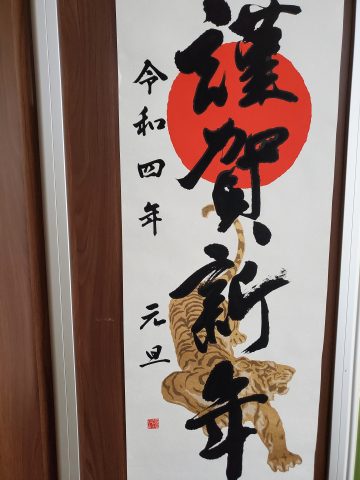 謹賀新年
令和四年　元旦